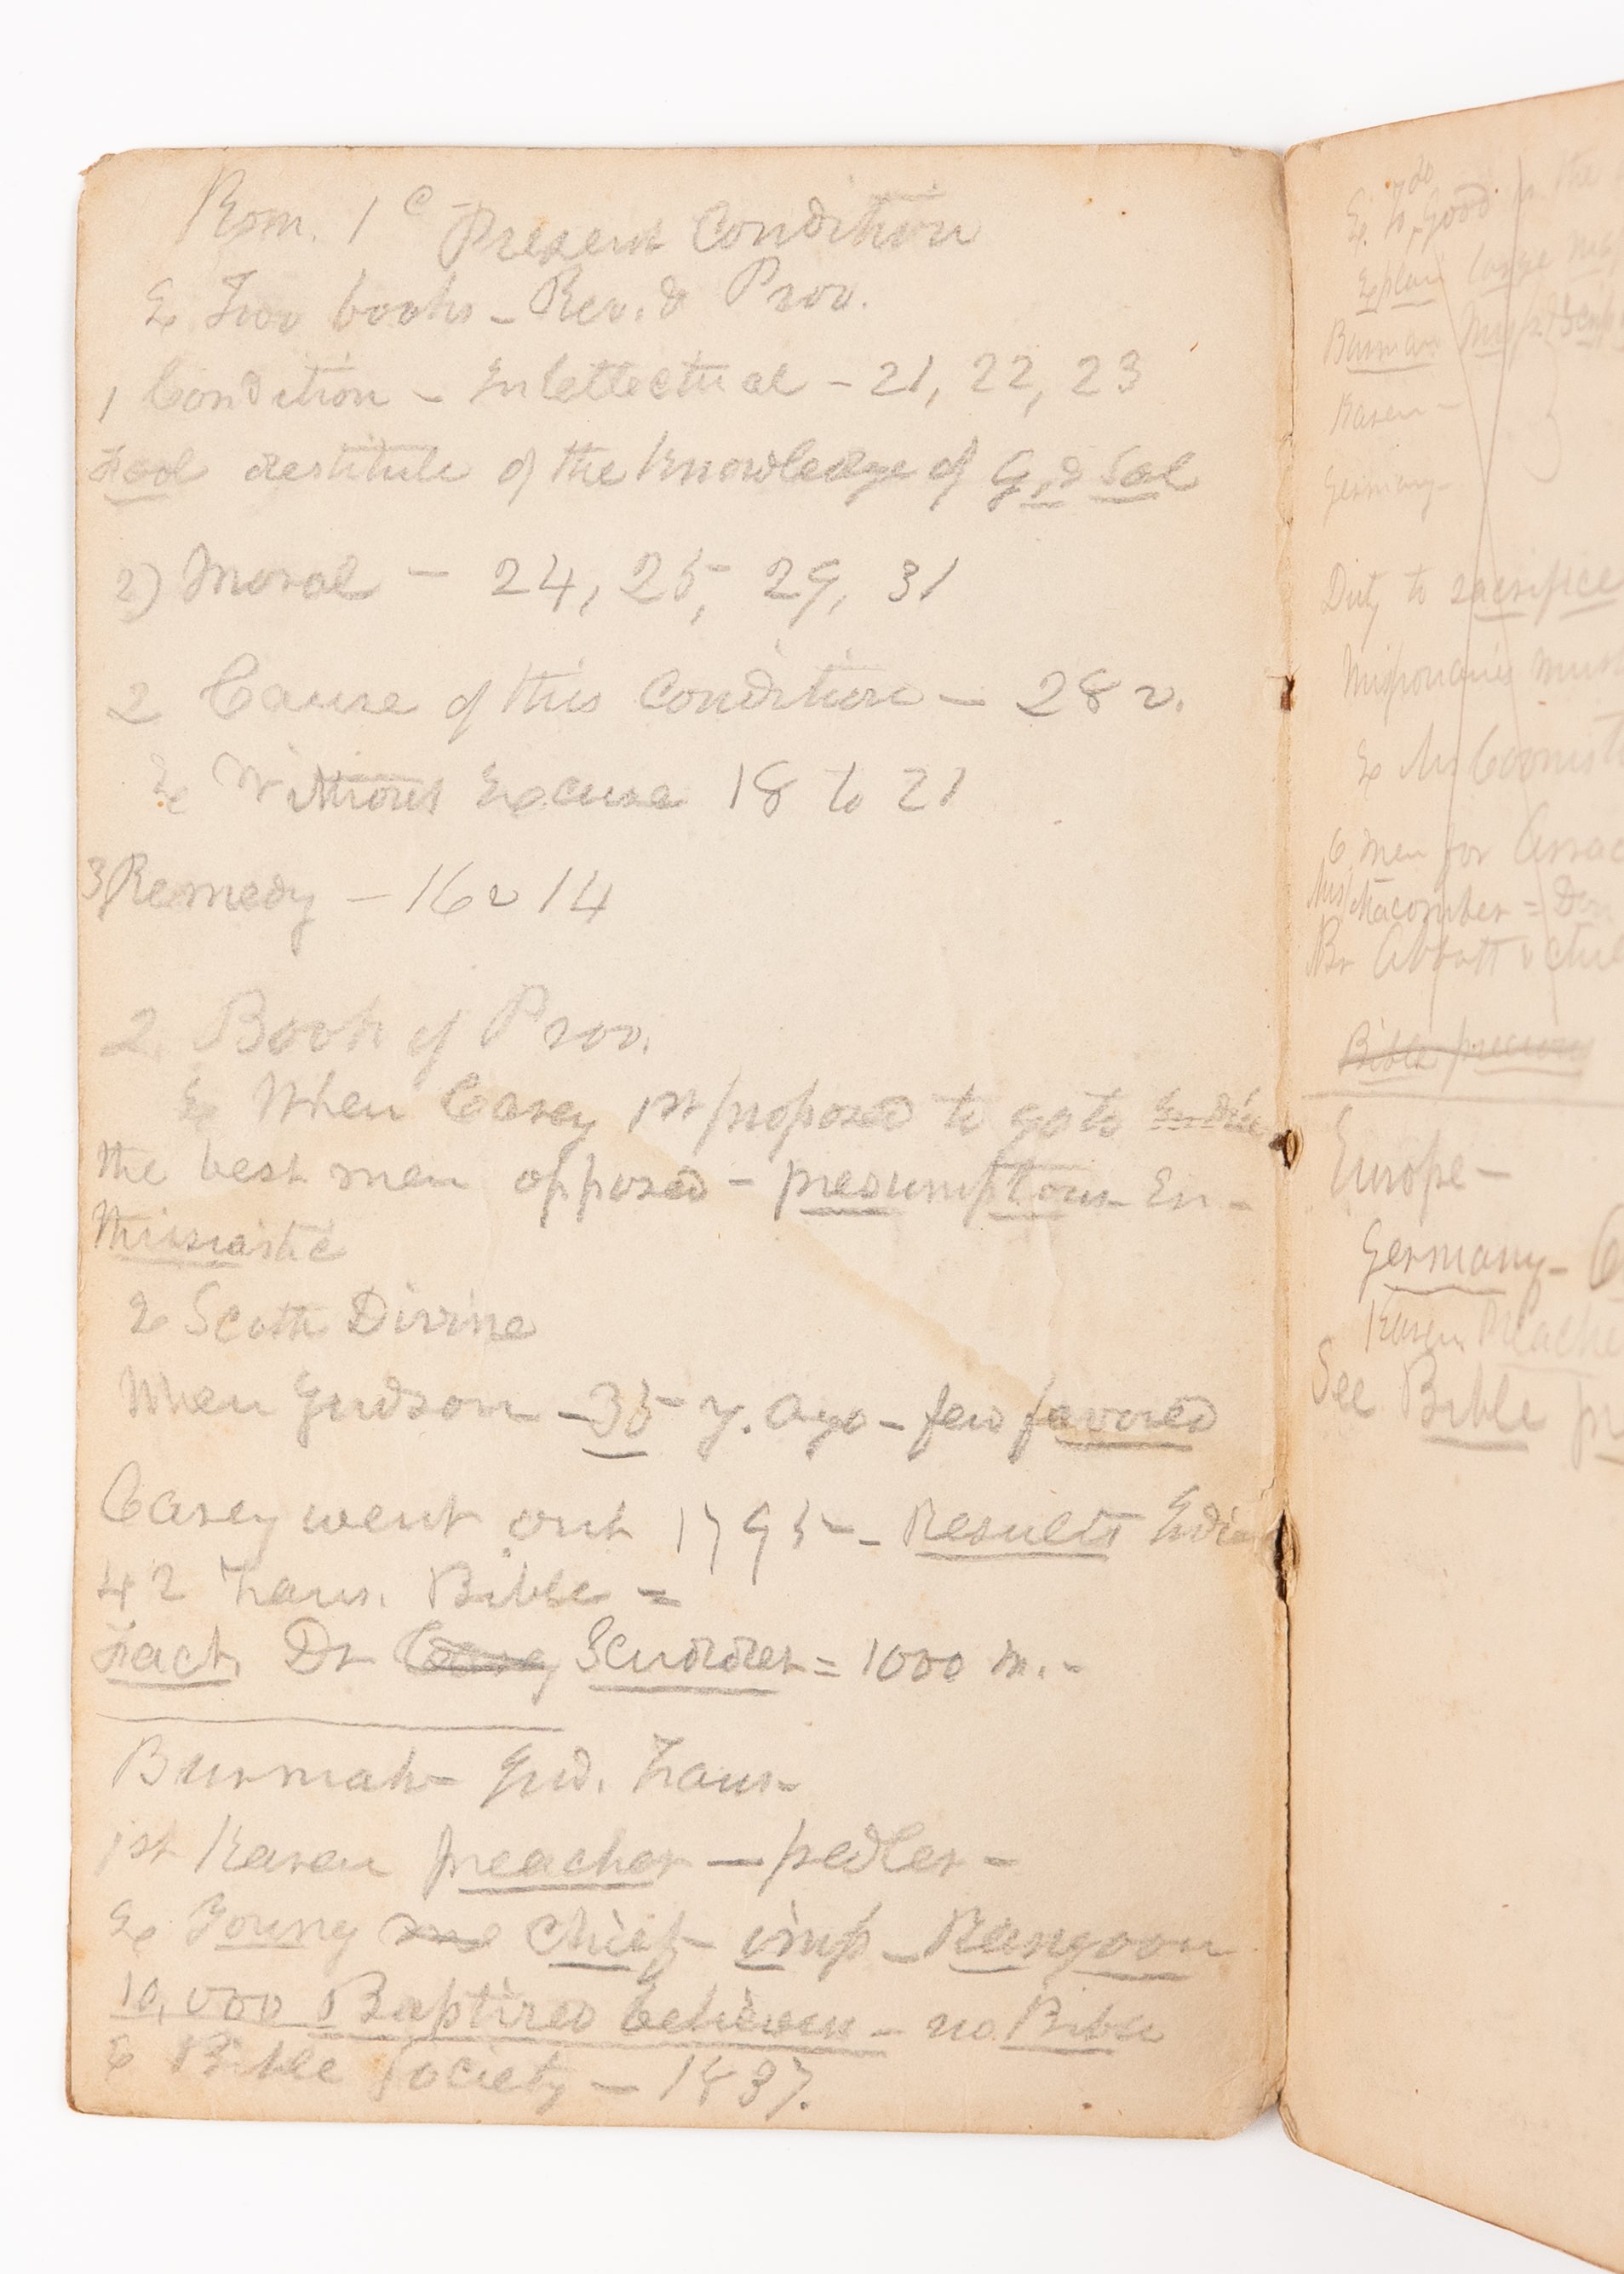 Rom. 1 c Present Condition
Ex Two books - Rev. & Prov.
1 Condition - Intellectual - 21, 22, 23
destitute of the Knowledge of G. & Sal
2) Moral - 24, 25, 29, 31
2 Cause of this condition - 28 v.
Ex Without Excuse 18 to 21
3 Remedy - 16 v 14
2. Book of Prov.
Ex When Carey 1st proposed to go to India
the best men opposed - presumptous En-
thusiastic
Ex Scotch Divine
When Judson - 35 y. ago - few favored
Carey went out 1795 - Results India
42 Trans. Bible =
Fact. Dr Carey Scudder = 1000 m. -
Burmah - Jud. Trans -
1st Karen preacher - pedler -
Ex Young Chief - imp - Rangoon
10,000 Baptized believers - no Bible
Ex Bible Society - 1837.
Ex. To do Good in the
Explain large
Burman
Karen -
Germany -
Duty to sacrifice
Missionaries must
Ex Mr
6 men for Arrac
Macomber =
Br Abbott &
Bible precious
Europe -
Germany -
Karen Preache
See Bible